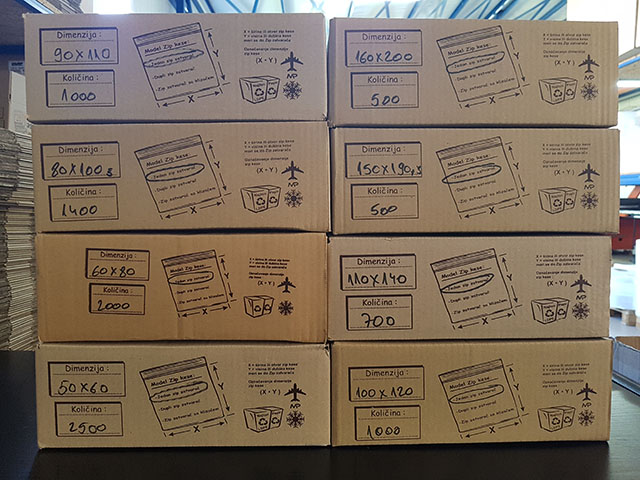 Dimenzija :
90 x 110
Količina :
1000
Model Zip kese:
Jedan zip zatvarač
Dupli zip zatvarač
Zip zatvarač sa klizačem
X
Y
X = širina ili otvor zip kese
Y = visina ili dubina kese
meri se do Zip zatvarača
Označavanje dimenzija
zip kese :
(X * Y)
Dimenzija :
160 x 200
Količina :
500
Model Zip kese:
Jedan zip zatvarač
Dupli zip zatvarač
Zip zatvarač sa klizačem
X
Y
X = širina ili otvor zip kese
Y = visina ili dubina kese
meri se do Zip zatvarača
Označavanje dimenzija
zip kese :
(X * Y)
Dimenzija :
80 x 100
Količina :
1400
Model Zip kese:
Jedan zip zatvarač
Dupli zip zatvarač
Zip zatvarač sa klizačem
X
Y
X = širina ili otvor zip kese
Y = visina ili dubina kese
meri se do Zip zatvarača
Označavanje dimenzija
zip kese :
(X * Y)
Dimenzija :
150 x 190
Količina :
500
Model Zip kese:
Jedan zip zatvarač
Dupli zip zatvarač
Zip zatvarač sa klizačem
X
Y
X = širina ili otvor zip kese
Y = visina ili dubina kese
meri se do Zip zatvarača
Označavanje dimenzija
zip kese :
(X * Y)
Dimenzija :
60 x 80
Količina :
2000
Model Zip kese:
Jedan zip zatvarač
Dupli zip zatvarač
Zip zatvarač sa klizačem
X
Y
X = širina ili otvor zip kese
Y = visina ili dubina kese
meri se do Zip zatvarača
Označavanje dimenzija
zip kese :
(X * Y)
Dimenzija :
110 x 140
Količina :
700
Model Zip kese:
Jedan zip zatvarač
Dupli zip zatvarač
Zip zatvarač sa klizačem
X
Y
X = širina ili otvor zip kese
Y = visina ili dubina kese
meri se do Zip zatvarača
Označavanje dimenzija
zip kese :
(X * Y)
Dimenzija :
50 x 60
Količina :
2500
Model Zip kese:
Jedan zip zatvarač
Dupli zip zatvarač
Zip zatvarač sa klizačem
X
Y
X = širina ili otvor zip kese
Y = visina ili dubina kese
meri se do Zip zatvarača
Označavanje dimenzija
zip kese :
(X * Y)
Dimenzija :
100 x 120
Količina :
1000
Model Zip kese:
Jedan zip zatvarač
Dupli zip zatvarač
Zip zatvarač sa klizačem
X
Y
X = širina ili otvor zip kese
Y = visina ili dubina kese
meri se do Zip zatvarača
Označavanje dimenzija
zip kese :
(X * Y)